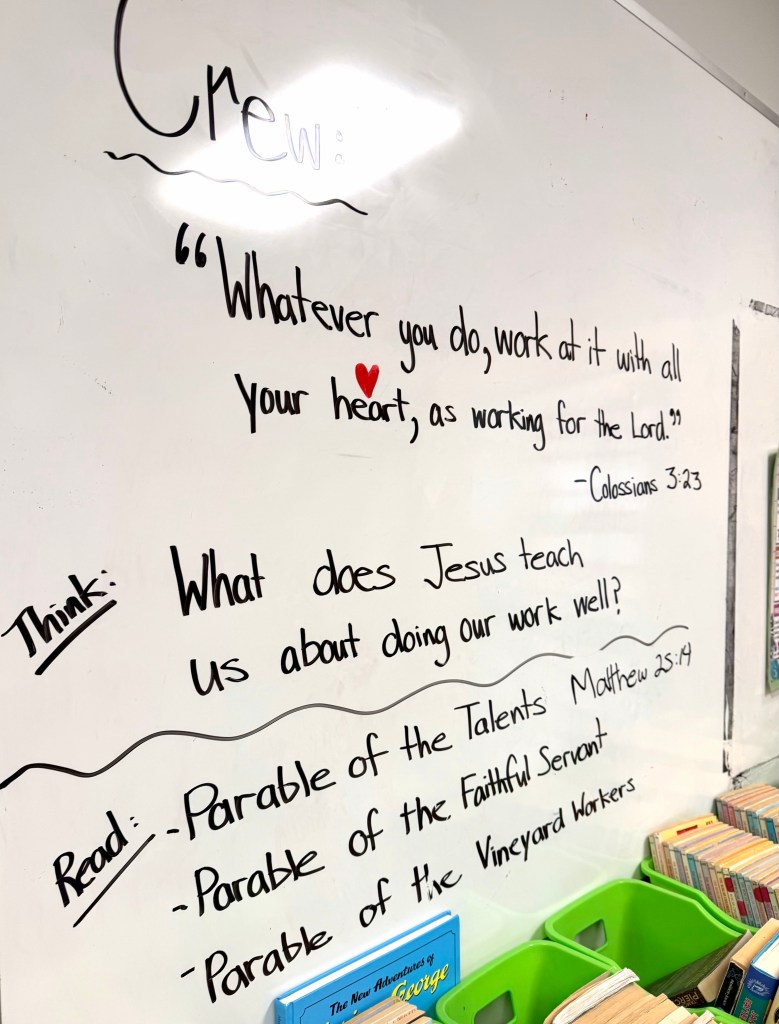 Crew:
"Whatever you do, work at it with all
your heart, as working for the Lord."
-Colossians 3:23
Think:
What does Jesus teach
us about doing our work well?
Read:
-Parable of the Talents Matthew 25:14
-Parable of the Faithful Servant
-Parable of the Vineyard Workers
The New Adventures of
George